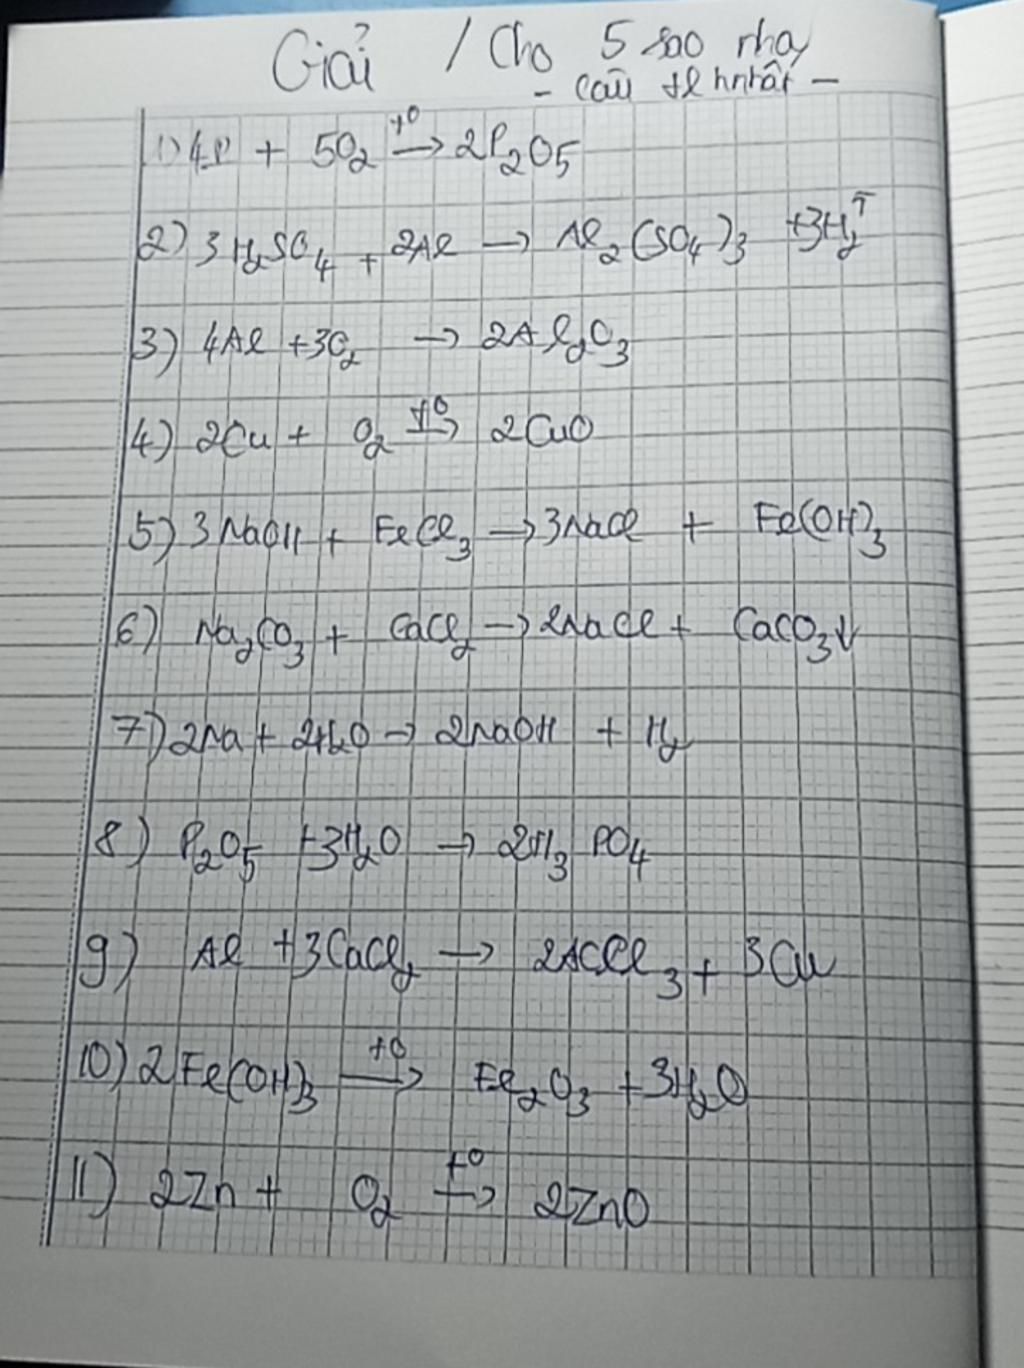 Giải / Cho 5 sao nha
- câu tl hnhất -
1) 4P + 5O₂ t⁰→ 2P₂O5
2) 3H₂SO₄ + 2Al → Al₂(SO₄)₃ +3H₂↑
3) 4Al +3O₂ → 2Al₂O₃
4) 2Cu + O₂ t⁰→ 2CuO
5) 3NaOH + FeCl₃ → 3NaCl + Fe(OH)₃
6) Na₂CO₃ + CaCl₂ → 2NaCl + CaCO₃↓
7) 2Na + 2H₂O → 2NaOH + H₂
8) P₂O₅ +3H₂O → 2H₃PO₄
9) Al +3CaCl₂ → 2ACCl₃ + 3Cu
10) 2Fe(OH)₃ t⁰→ Fe₂O₃ +3H₂O
11) 2Zn + O₂ t⁰→ 2ZnO